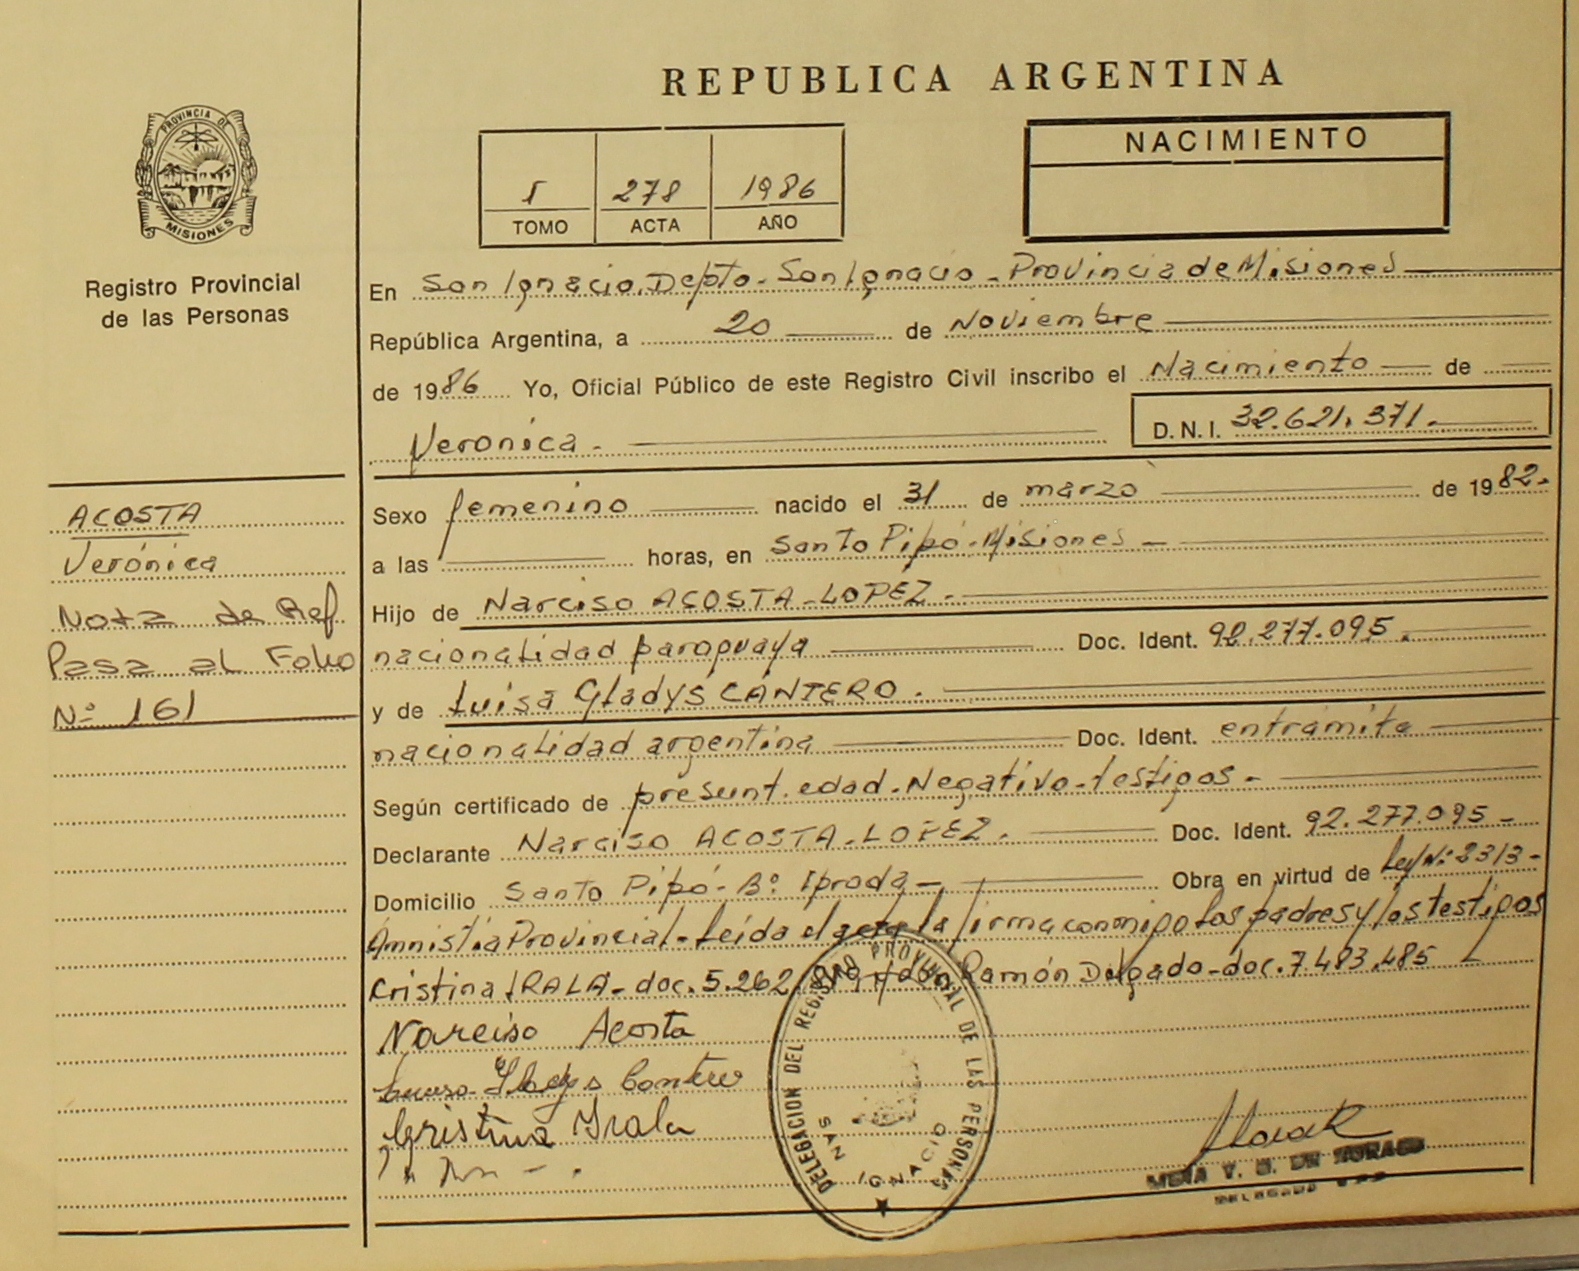 REPUBLICA ARGENTINA
PROVINCIA DE
MISIONES
Registro Provincial
de las Personas
I 278 1986
TOMO ACTA AÑO
NACIMIENTO
En San Ignacio. Depto. San Ignacio - Provincia de Misiones
República Argentina, a 20 de Noviembre
de 1986 Yo, Oficial Público de este Registro Civil inscribo el Nacimiento de
Veronica - D.N.I. 32.621.371.
ACOSTA
Verónica
Nota de Ref
Pasa al Folio
Nº 161
Sexo femenino nacido el 31 de marzo de 1982.
a las horas, en Santo Pipó - Misiones -
Hijo de Narciso ACOSTA - LOPEZ.
nacionalidad paraguaya Doc. Ident. 92.277.095.
y de Luisa Gladys CANTERO.
nacionalidad argentina Doc. Ident. entramite
Según certificado de presunt. edad - Negativo - testigos -
Declarante Narciso ACOSTA - LOPEZ. Doc. Ident. 92.277.095 -
Domicilio Santo Pipó - Bº Iproda - Obra en virtud de Ley Nº 2313 -
Amnistía Provincial - Leída el acta la firma conmigo los padres y los testigos
Cristina IRALA - doc. 5.262 Ramón Delgado - doc. 7.483.485
Narciso Acosta
Gladys Cantero
Cristina Irala
DELEGACION DEL REGISTRO PROVINCIAL DE LAS PERSONAS
SAN IGNACIO